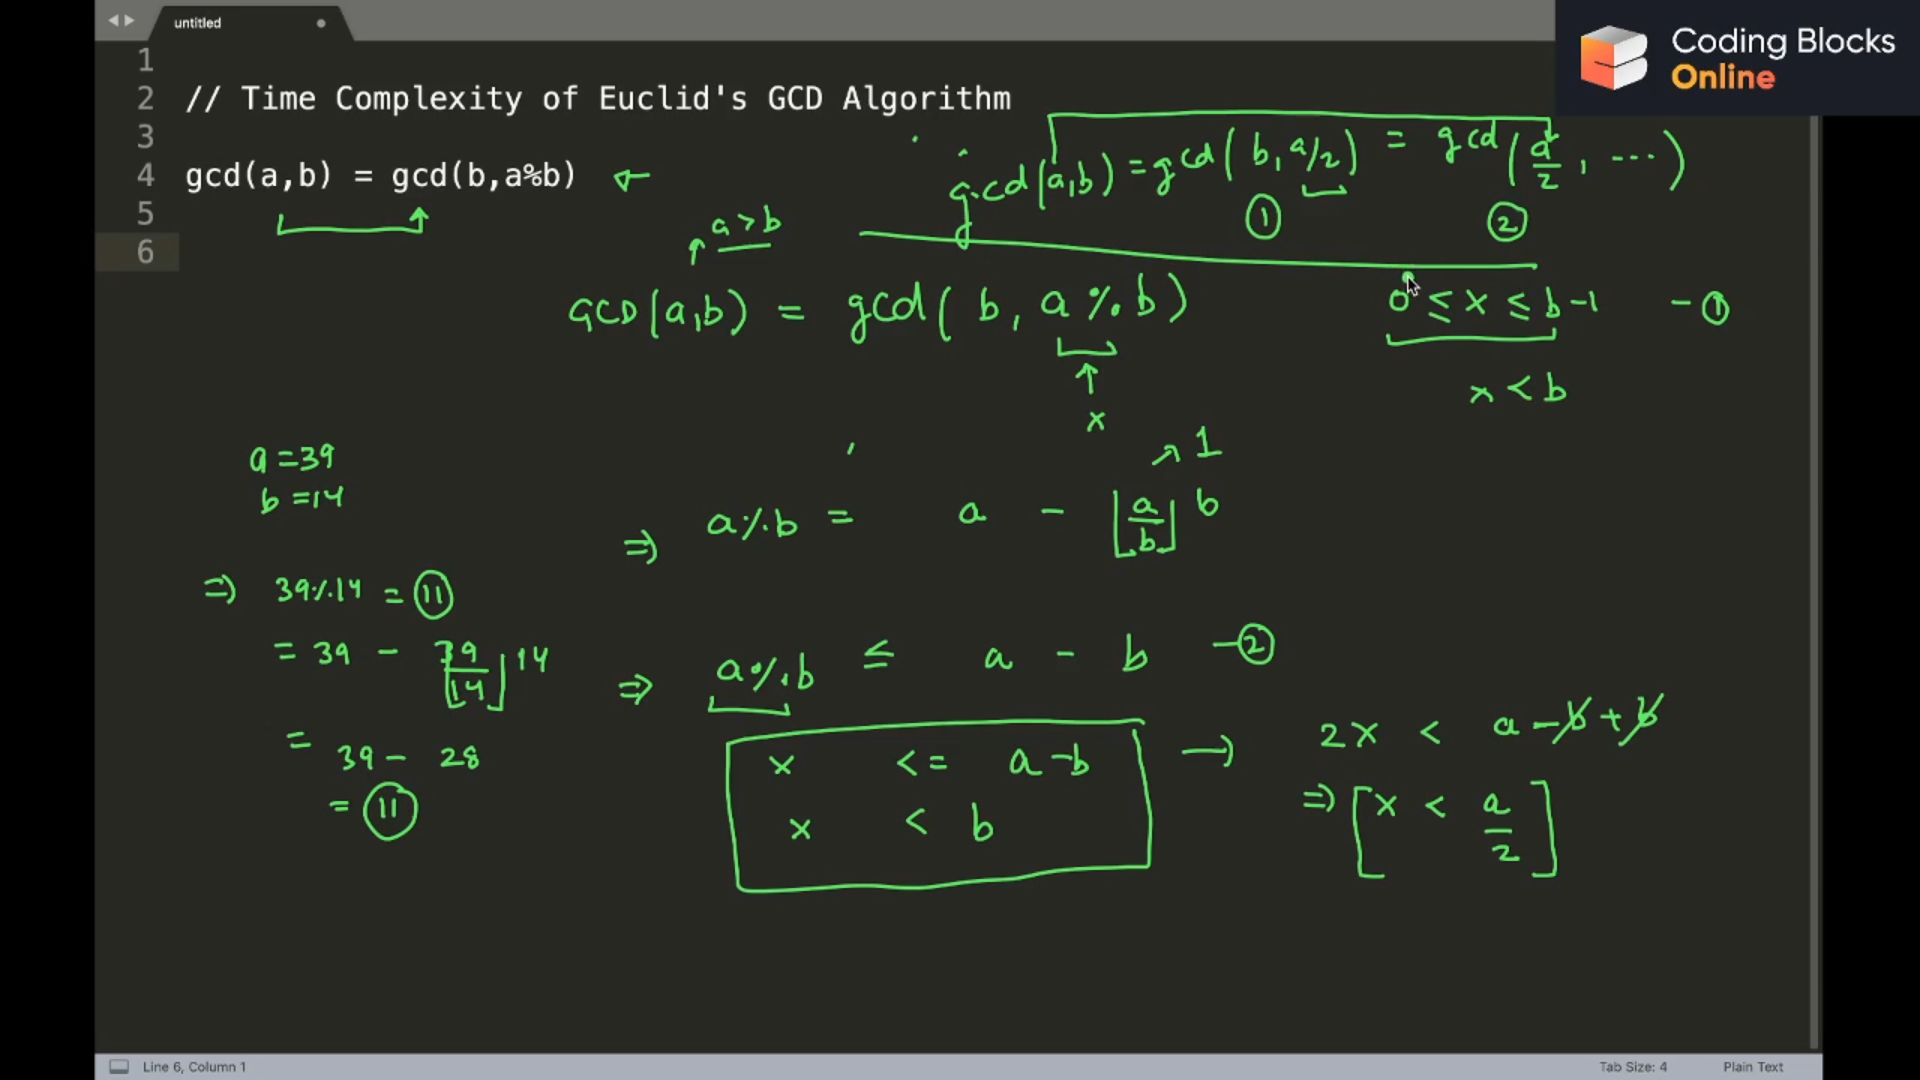 untitled
Coding Blocks
Online
1
2 // Time Complexity of Euclid's GCD Algorithm
3
4 gcd(a,b) = gcd(b,a%b)
5
6
gcd(a,b) = gcd(b, a/2) = gcd(a/2, ...)
① ②
a > b
GCD(a,b) = gcd(b, a % b)
x
0 ≤ x ≤ b-1 - ①
x < b
a = 39
b = 14
⇒ 39%14 = ⑪
= 39 - ⌊39/14⌋ 14
= 39 - 28
= ⑪
⇒ a%b = a - ⌊a/b⌋ b
1
⇒ a%b ≤ a - b - ②
x <= a-b
x < b
→ 2x < a - b + b
⇒ [x < a/2]
Line 6, Column 1
Tab Size: 4
Plain Text